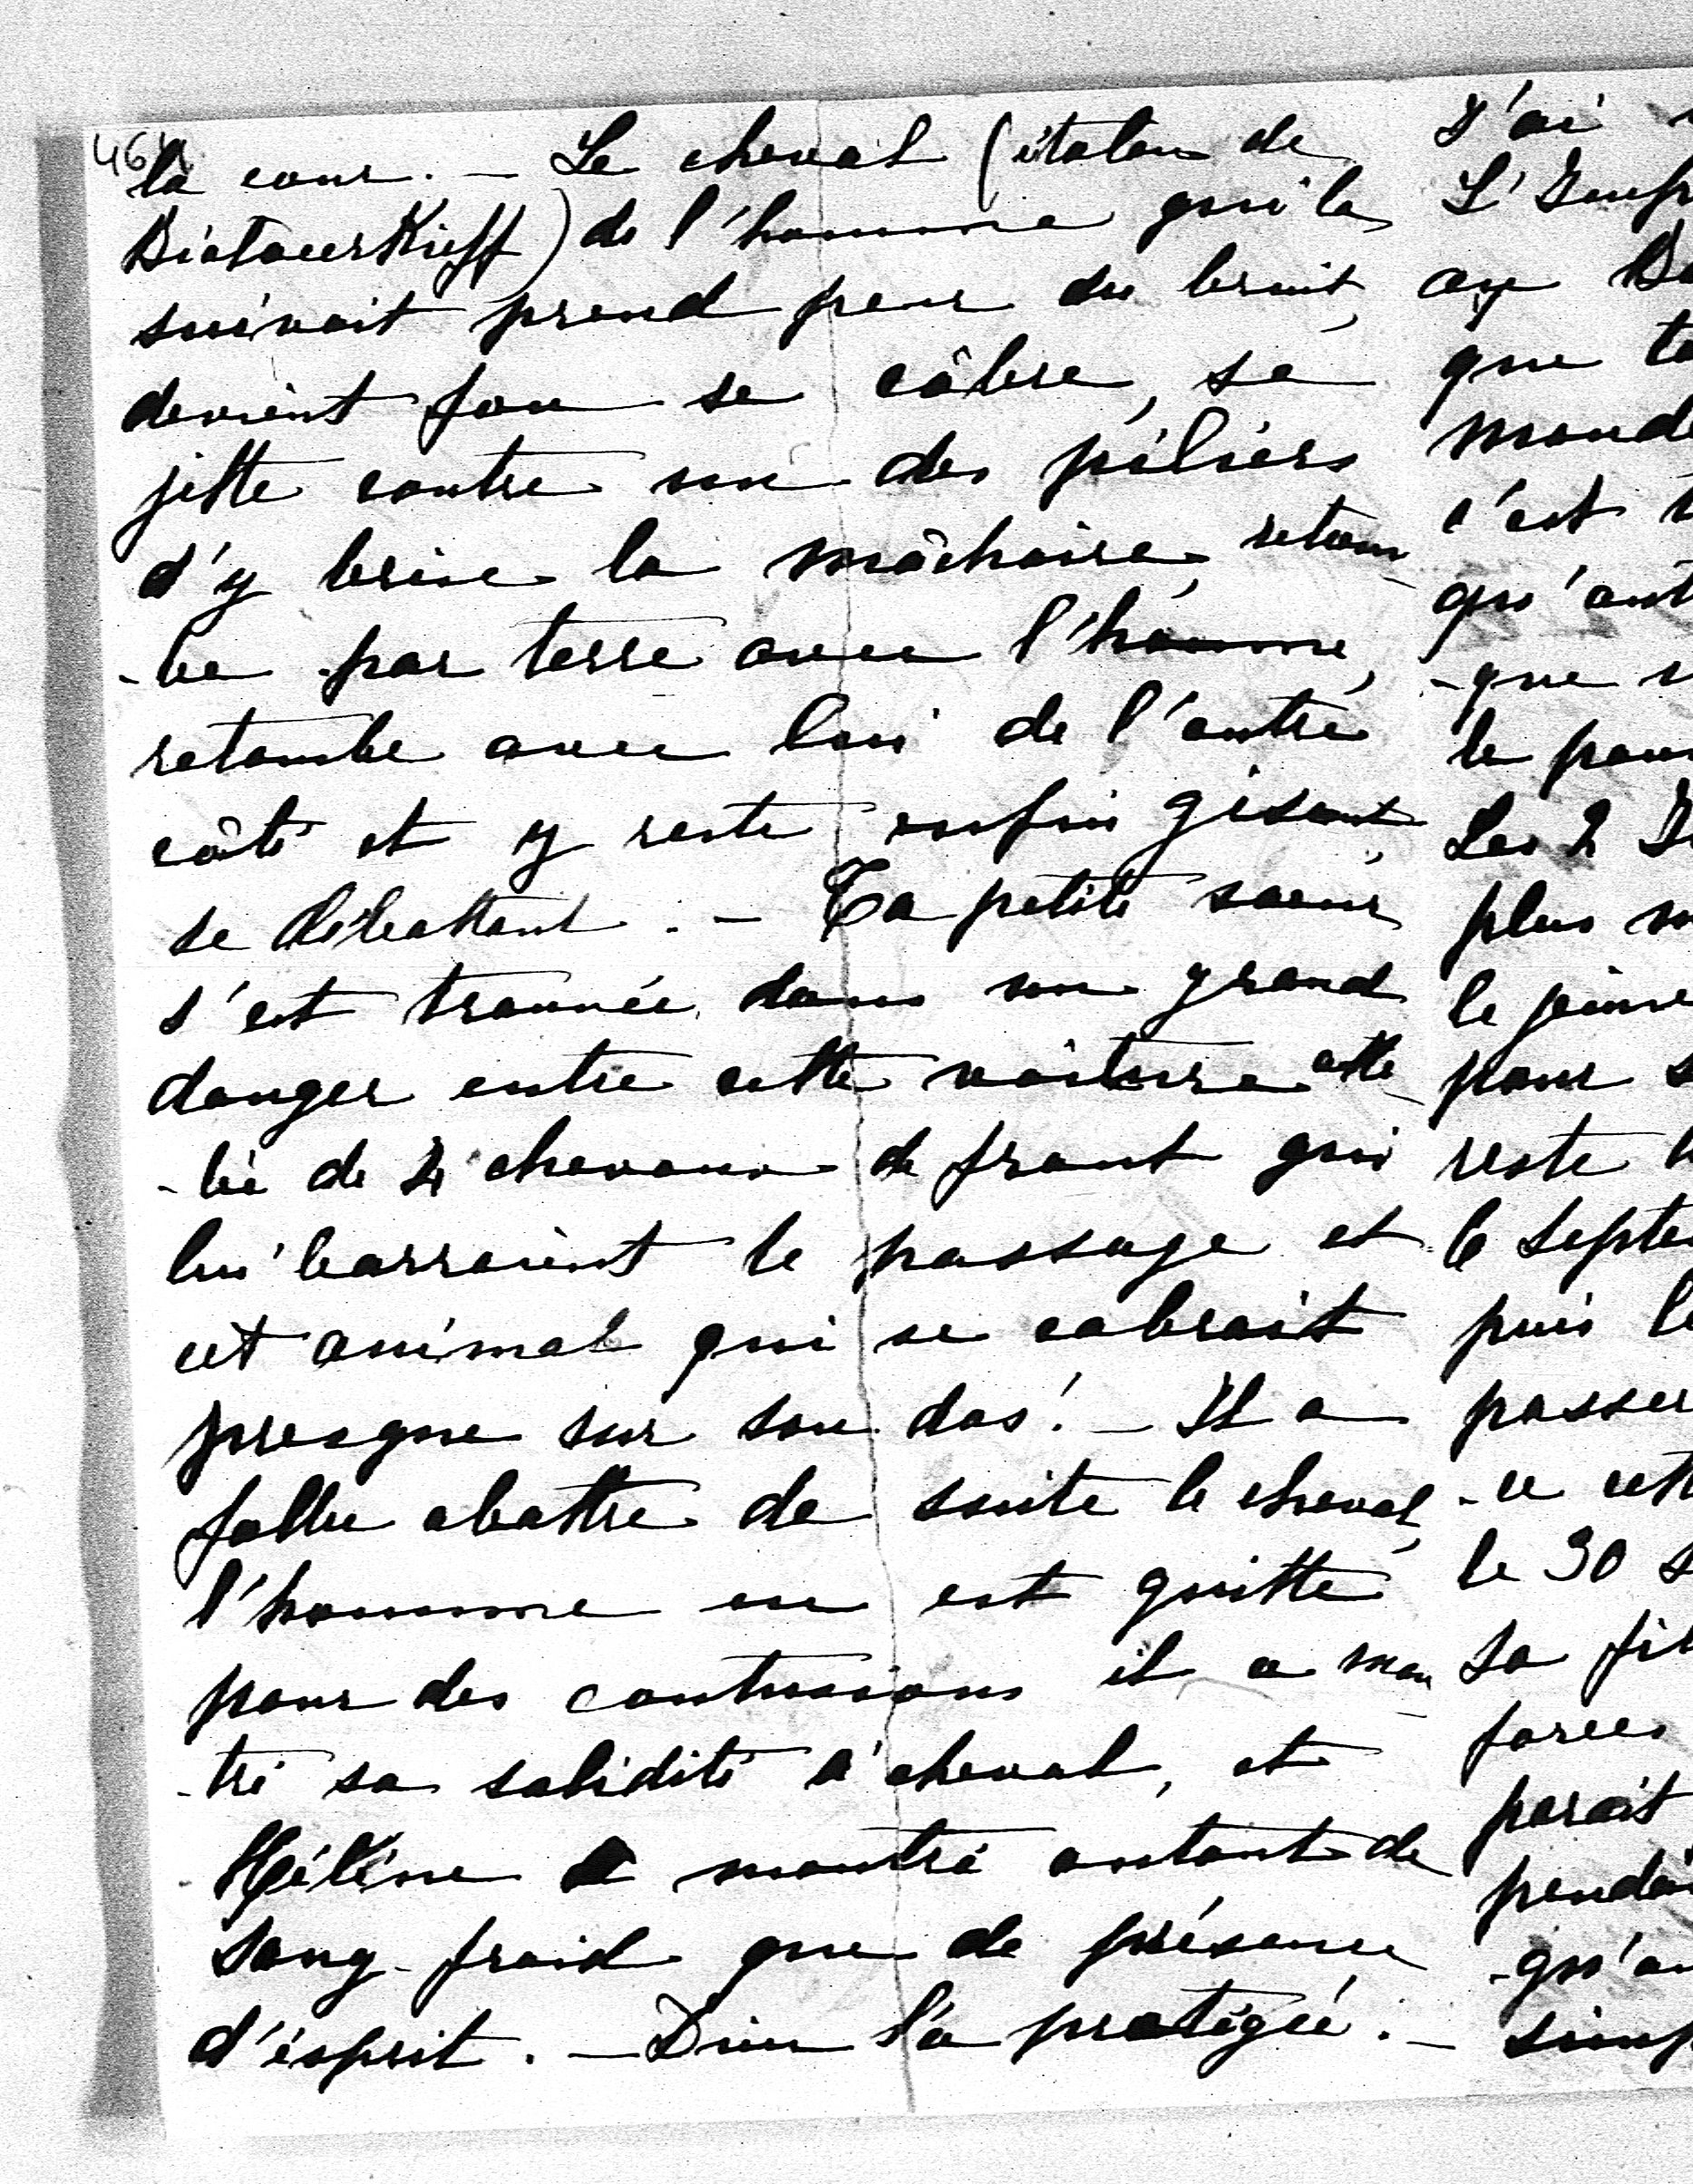 464
la cour. — Le cheval (étalon de
) de l'homme qui la
suivait prend peur du bruit,
devient fou se câbre, se
jette contre un des piliers
s'y brise la mâchoire, retom
-be par terre avec l'homme,
retombe avec lui de l'autre
côté et y reste enfin gisant,
se débattant. — Ta petite sœur
s'est trouvée dans un grand
danger entre cette voiture atte
-lée de 4 chevaux de front qui
lui barraient le passage et
cet animal qui se cabrait
presque sur son dos! — Il a
fallu abattre de suite le cheval,
l'homme en est quitte
pour des contusions il a mon
-tré sa solidité à cheval, et
Hélène a montré autant de
sang-froid que de présence
d'ésprit. — Dieu l'a protégée. —
J'ai
L'Imp
au
que
monde
c'est
qu'aut
-que
le
Les 2
plus
le jeune
pour
reste
6 Septe
puis
passer
-ce
le 30
sa
forces
parait
penda
-qu'
simp